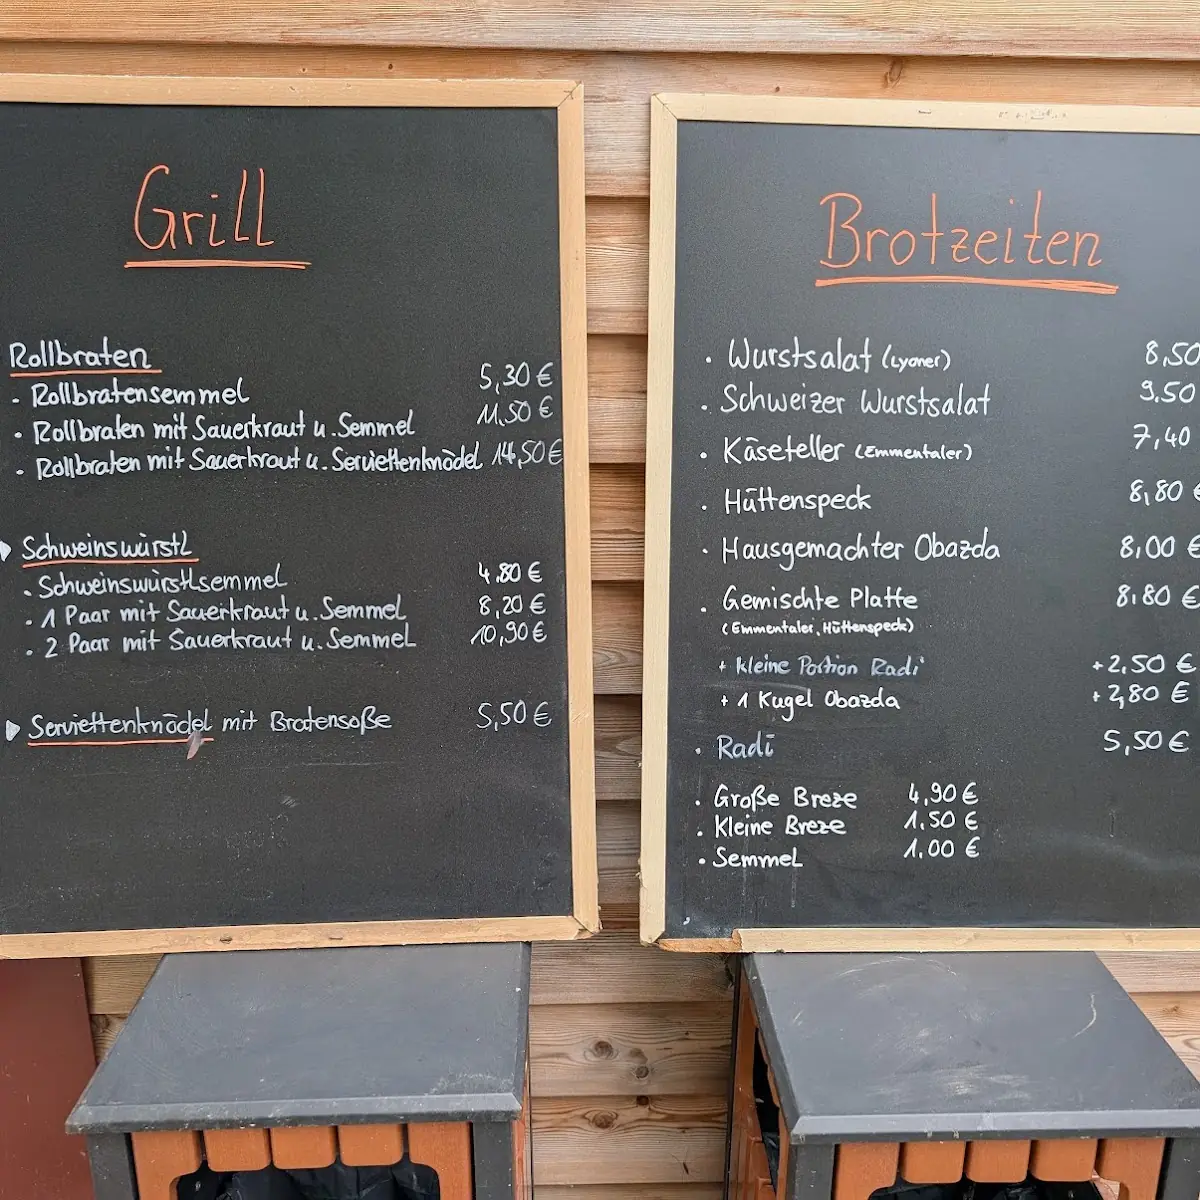 Grill
Rollbraten
· Rollbratensemmel 5,30 €
· Rollbraten mit Sauerkraut u. Semmel 11,50 €
· Rollbraten mit Sauerkraut u. Serviettenknödel 14,50 €
Schweinswürstl
· Schweinswürstlsemmel 4,80 €
· 1 Paar mit Sauerkraut u. Semmel 8,20 €
· 2 Paar mit Sauerkraut u. Semmel 10,90 €
Serviettenknödel mit Bratensoße 5,50 €
Brotzeiten
· Wurstsalat (Lyoner) 8,50
· Schweizer Wurstsalat 9,50
· Käseteller (Emmentaler) 7,40
· Hüttenspeck 8,80 €
· Hausgemachter Obazda 8,00 €
· Gemischte Platte 8,80 €
(Emmentaler, Hüttenspeck)
+ kleine Portion Radi +2,50 €
+ 1 Kugel Obazda +2,80 €
· Radi 5,50 €
· Große Breze 4,90 €
· Kleine Breze 1,50 €
· Semmel 1,00 €